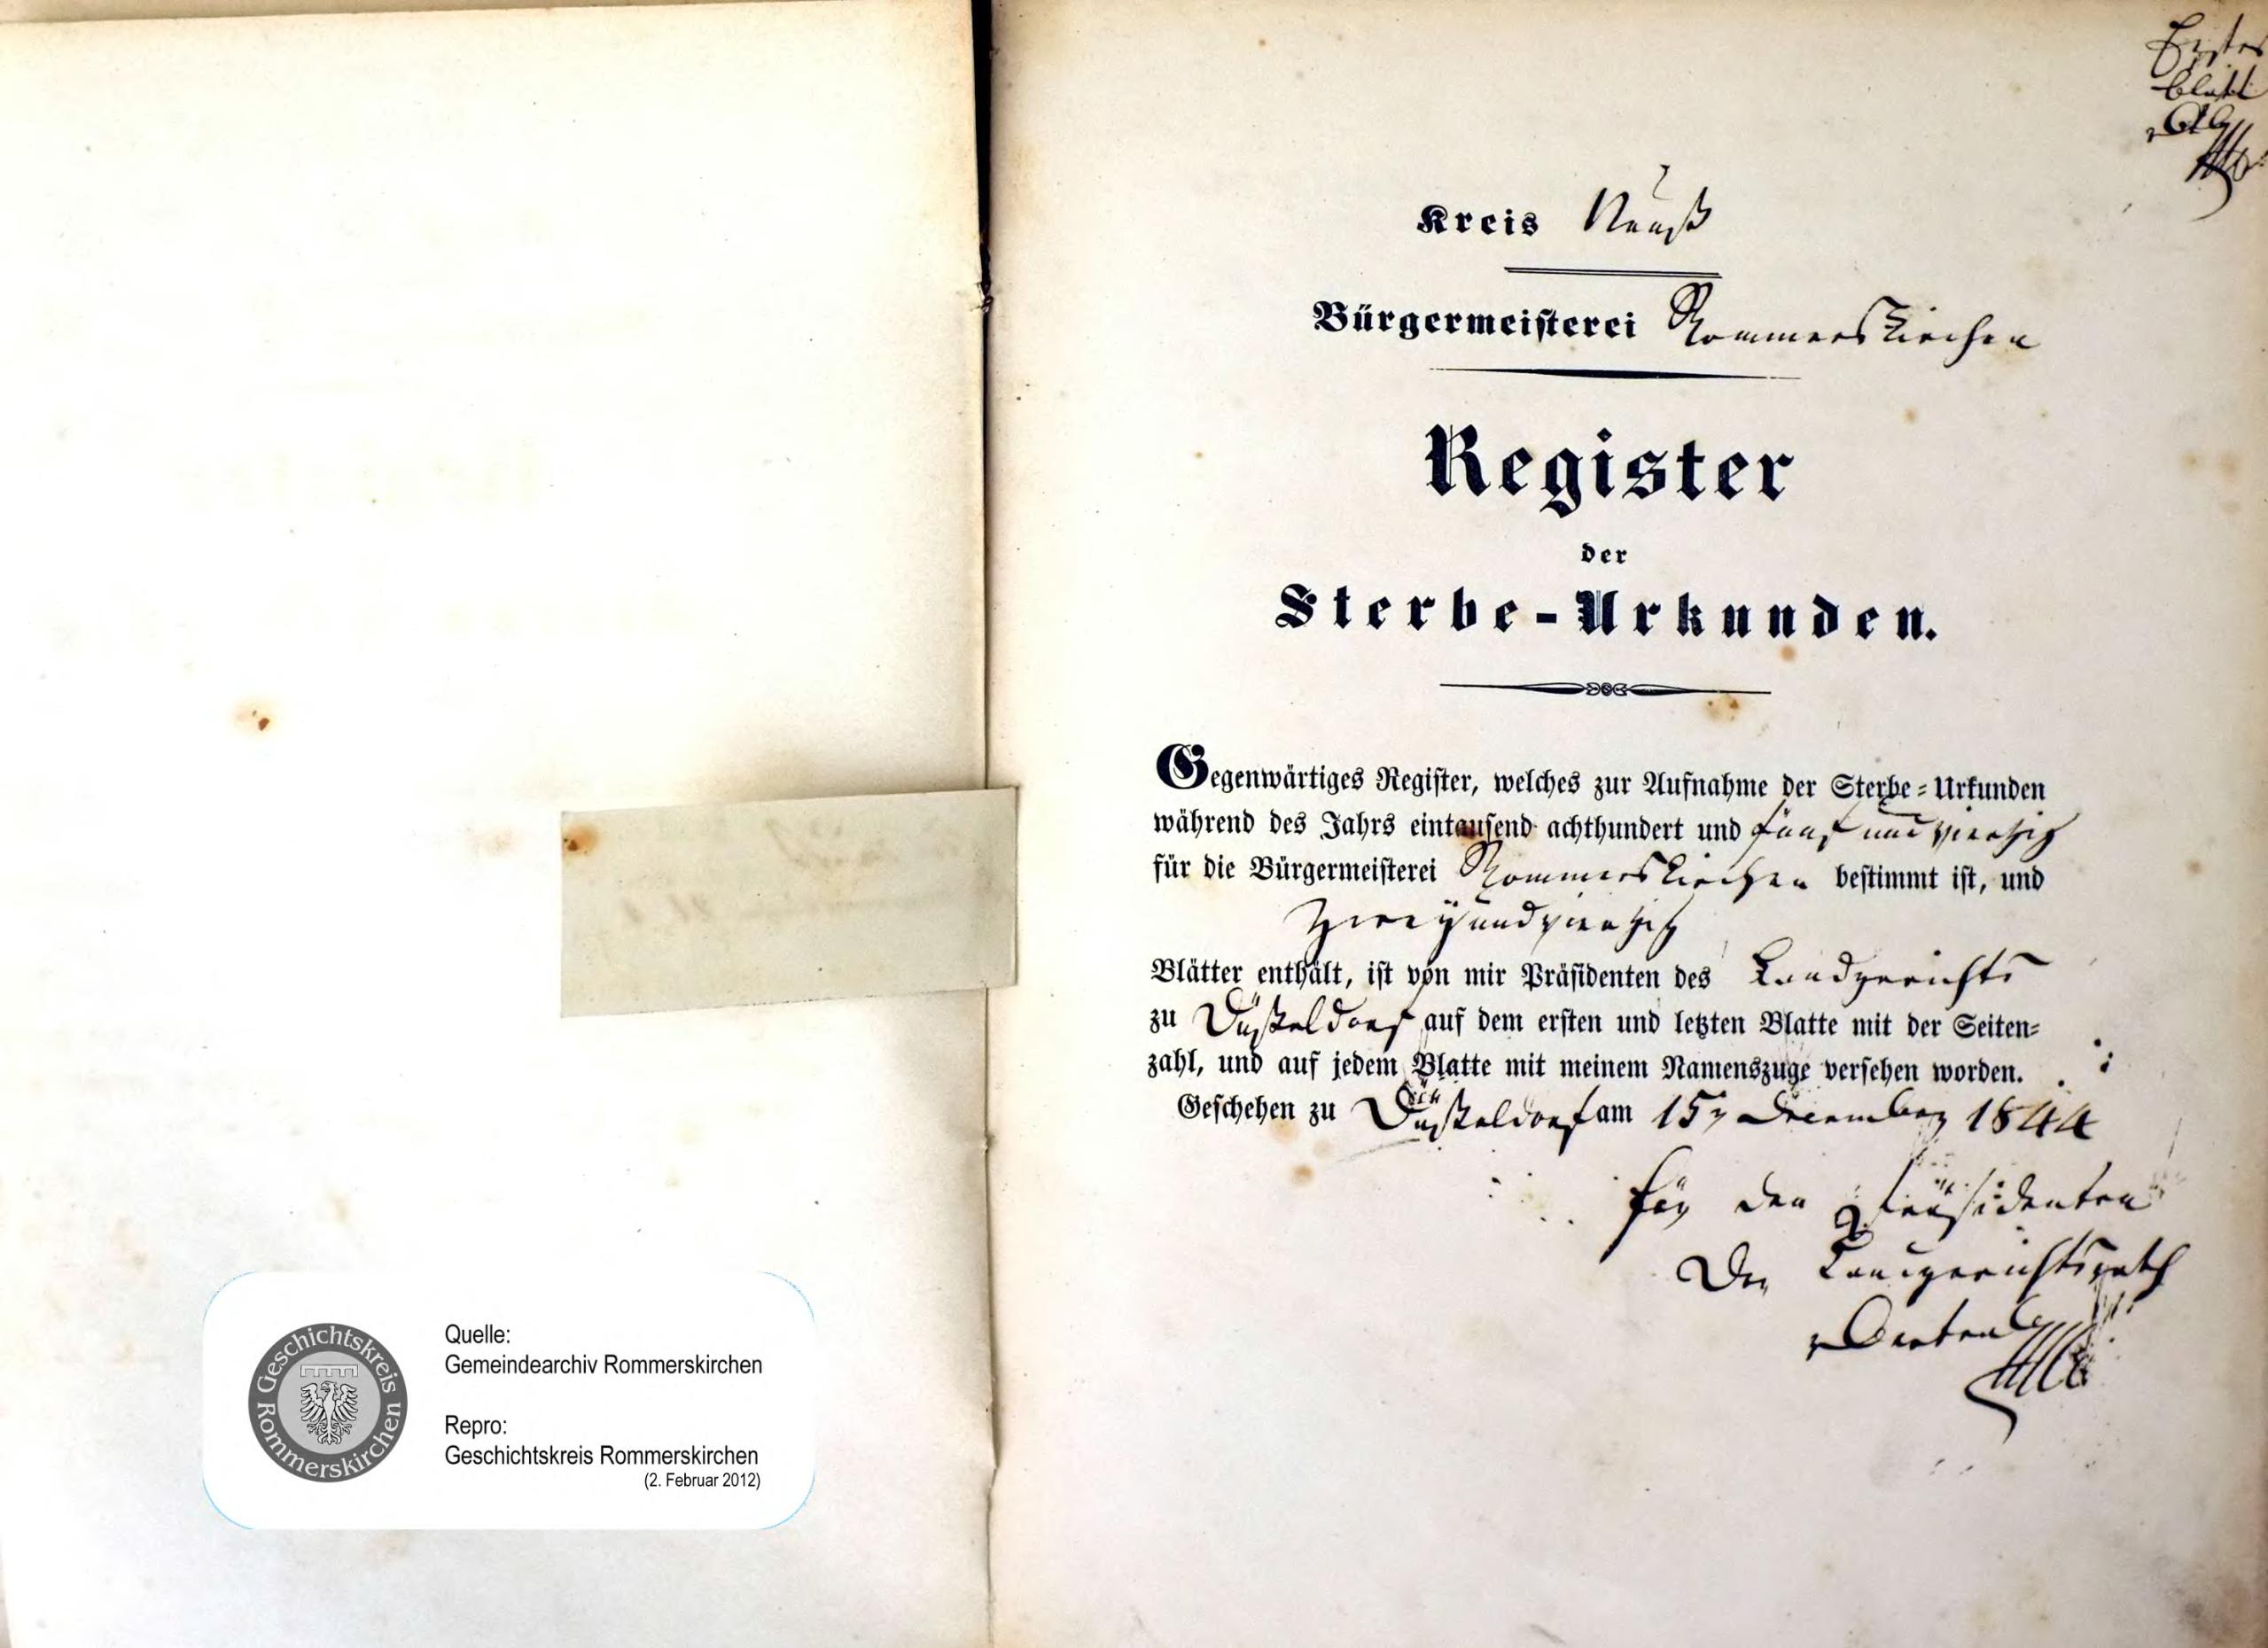 Erstes
Blatt
Kreis Neuß
Bürgermeisterei Rommerskirchen
Register
der
Sterbe-Urkunden.
Gegenwärtiges Register, welches zur Aufnahme der Sterbe-Urkunden
während des Jahrs eintausend achthundert und fünf und vierzig
für die Bürgermeisterei Rommerskirchen bestimmt ist, und
zwey und vierzig
Blätter enthält, ist von mir Präsidenten des Landgerichts
zu Düßeldorf auf dem ersten und letzten Blatte mit der Seiten-
zahl, und auf jedem Blatte mit meinem Namenszuge versehen worden.
Geschehen zu Düßeldorf am 15 December 1844
Für den Präsidenten
Der Landgerichtsrath
Geschichtskreis Rommerskirchen
Quelle:
Gemeindearchiv Rommerskirchen
Repro:
Geschichtskreis Rommerskirchen
(2. Februar 2012)